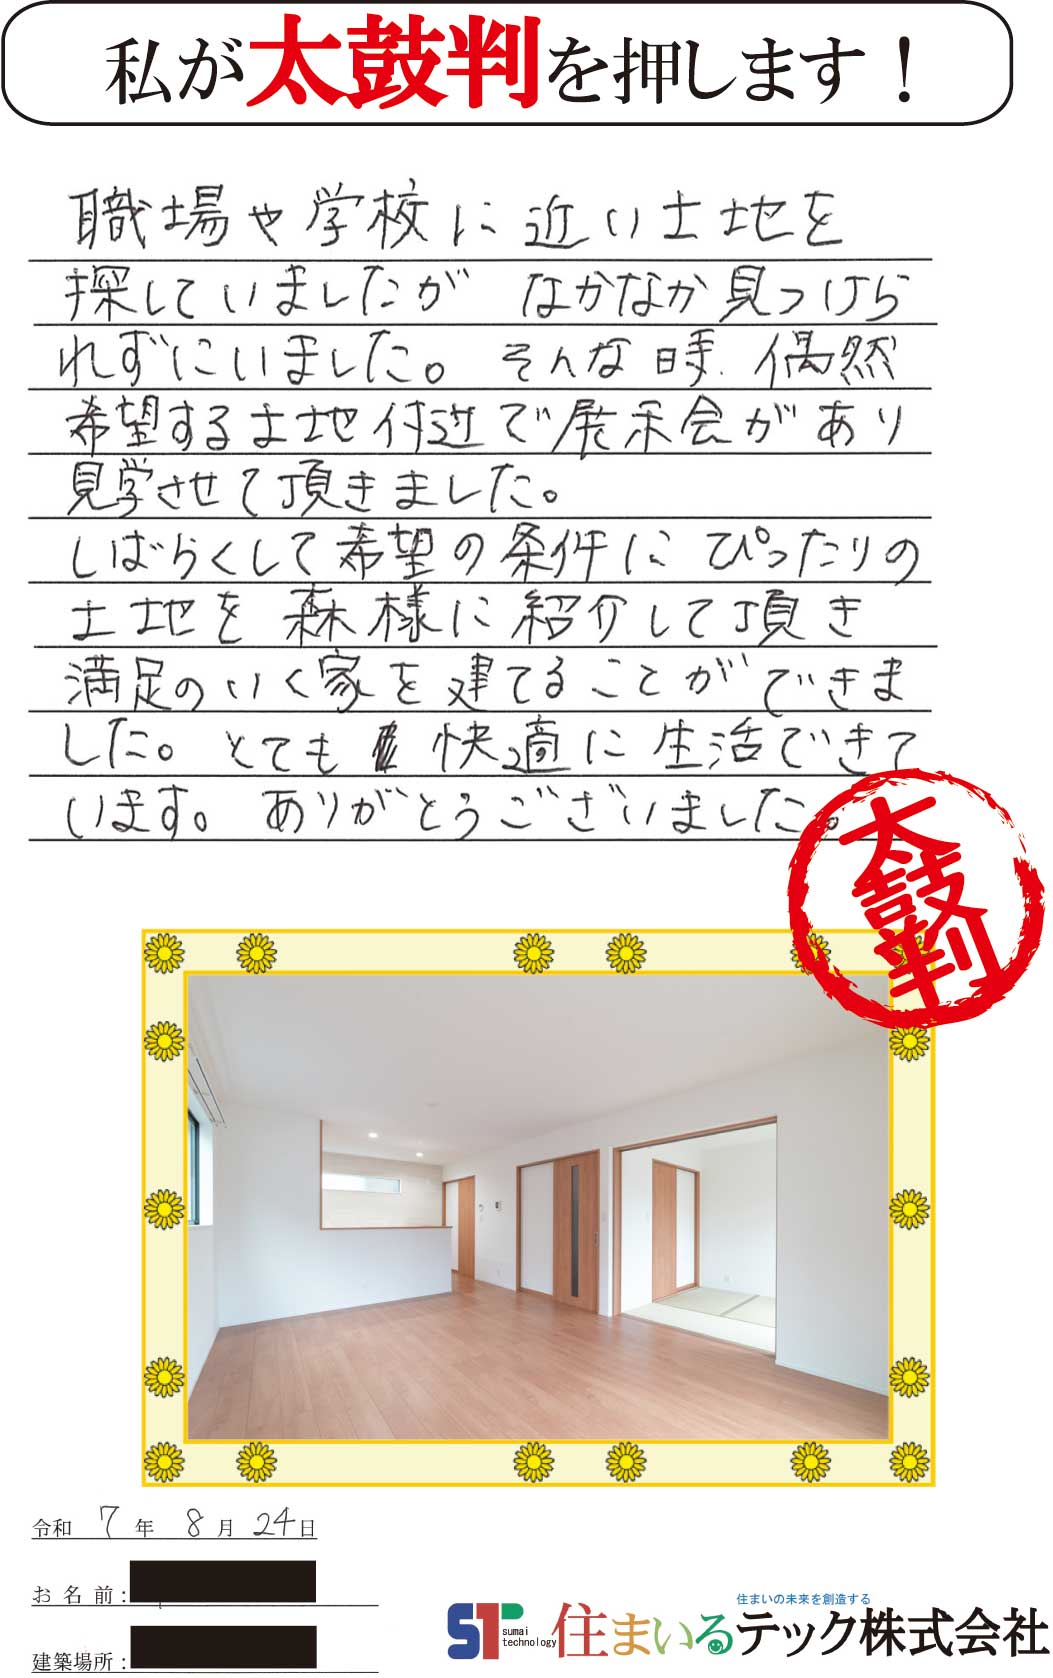 私が太鼓判を押します！
職場や学校に近い土地を
探していましたが なかなか見つけら
れずにいました。そんな時、偶然
希望する土地付近で展示会があり
見学させて頂きました。
しばらくして希望の条件に ぴったりの
土地を 森様に紹介して頂き
満足のいく家を建てることができま
した。とても 快適に生活できて
います。ありがとうございました。
太鼓判
令和 7 年 8 月 24 日
お名前：
建築場所：
住まいの未来を創造する
ST sumai technology 住まいるテック株式会社